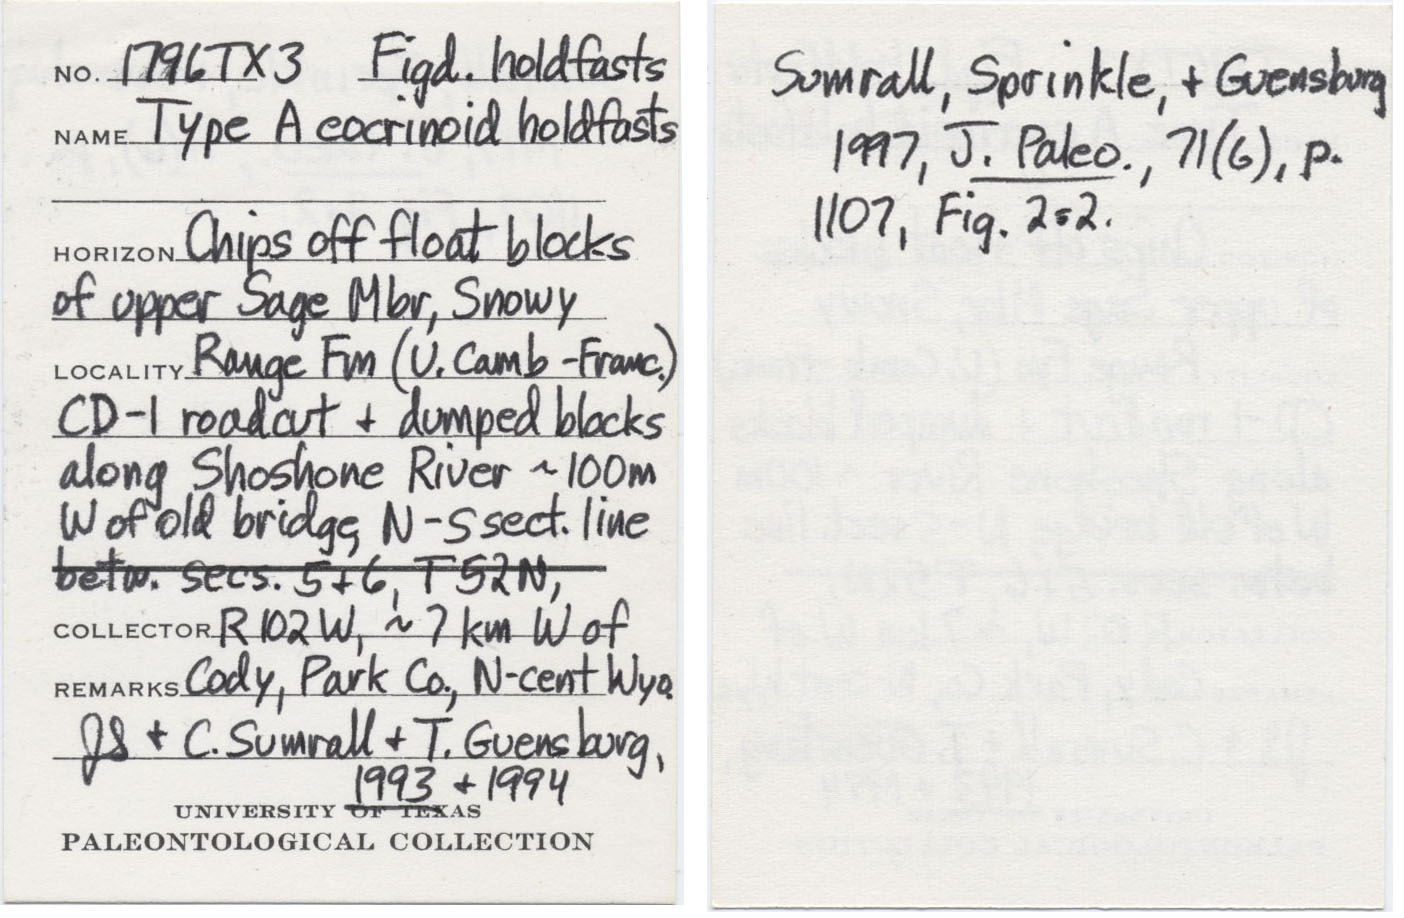 NO. 1796TX3 Figd. holdfasts
NAME Type A eocrinoid holdfasts
HORIZON Chips off float blocks
of upper Sage Mbr, Snowy
LOCALITY Range Fm (U. Camb - Franc.)
CD-1 roadcut + dumped blocks
along Shoshone River ~ 100m
W of old bridge, N-S sect. line
betw. secs. 5+6, T52N,
COLLECTOR R102W, ~ 7 km W of
REMARKS Cody, Park Co., N-cent Wyo.
JS + C. Sumrall + T. Guensburg,
1993 + 1994
UNIVERSITY OF TEXAS
PALEONTOLOGICAL COLLECTION
Sumrall, Sprinkle, + Guensburg
1997, J. Paleo., 71(6), p.
1107, Fig. 2.2.